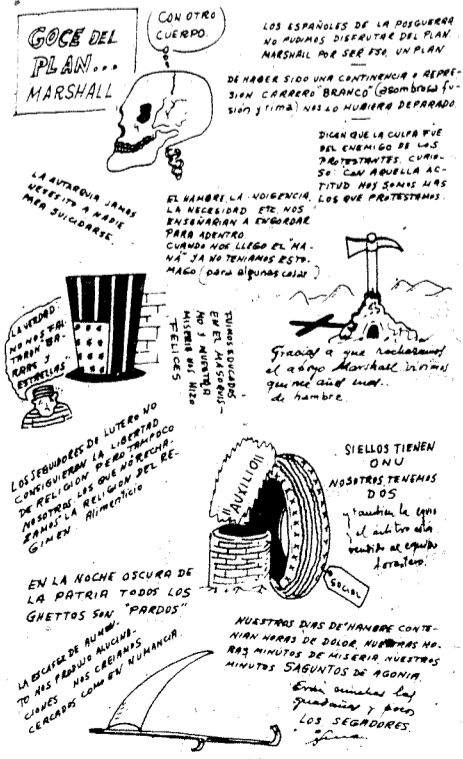 GOCE DEL
PLAN...
MARSHALL
CON OTRO
CUERPO.
LOS ESPAÑOLES DE LA POSGUERRA
NO PUDIMOS DISFRUTAR DEL PLAN
MARSHALL POR SER ESO, UN PLAN
DE HABER SIDO UNA CONTINENCIA O REPRE-
SION CARRERO "BRANCO" (asombrosa fu-
sión y rima) NOS LO HUBIERA DEPARADO.
DICEN QUE LA CULPA FUE
DEL ENEMIGO DE LOS
PROTESTANTES. CURIO-
SO: CON AQUELLA AC-
TITUD HOY SOMOS MAS
LOS QUE PROTESTAMOS.
LA AUTARQUIA JAMAS
NECESITO A NADIE
PARA SUICIDARSE.
EL HAMBRE, LA INDIGENCIA,
LA NECESIDAD ETC. NOS
ENSEÑARIAN A ENGORDAR
PARA ADENTRO.
CUANDO NOS LLEGO EL "MA-
NÁ" YA NO TENIAMOS ESTO-
MAGO (para algunas cosas)
LA VERDAD
NO NOS FAL-
TARON "BA-
RRAS Y
ESTRELLAS"
FUIMOS EDUCADOS
EN EL MASOQUIS-
MO Y NUESTRA
MISERIA NOS HIZO
FELICES
Gracias a que rechazamos
el apoyo Marshall vivimos
quince años más..
de hambre.
LOS SEGUIDORES DE LUTERO NO
CONSIGUIERAN LA LIBERTAD
DE RELIGION PERO TAMPOCO
NOSOTROS LOS QUE NO RECHA-
ZAMOS LA RELIGION DEL RE-
GIMEN. Alimenticio
¡¡AUXILIO!!
SOCIAL
SI ELLOS TIENEN
ONU
NOSOTROS TENEMOS
DOS
y el árbitro está
vendido al equipo
forastero.
EN LA NOCHE OSCURA DE
LA PATRIA TODOS LOS
GHETTOS SON "PARDOS"
LA ESCASEZ DE ALIMEN-
TO NOS PRODUJO ALUCINA-
CIONES. NOS CREIAMOS
CERCADOS COMO EN NUMANCIA.
NUESTROS DIAS DE HAMBRE CONTE-
NIAN HORAS DE DOLOR, NUESTRAS HO-
RAS MINUTOS DE MISERIA, NUESTROS
MINUTOS SAGUNTOS DE AGONIA.
Eran muchas las
guadañas y pocos
LOS SEGADORES.